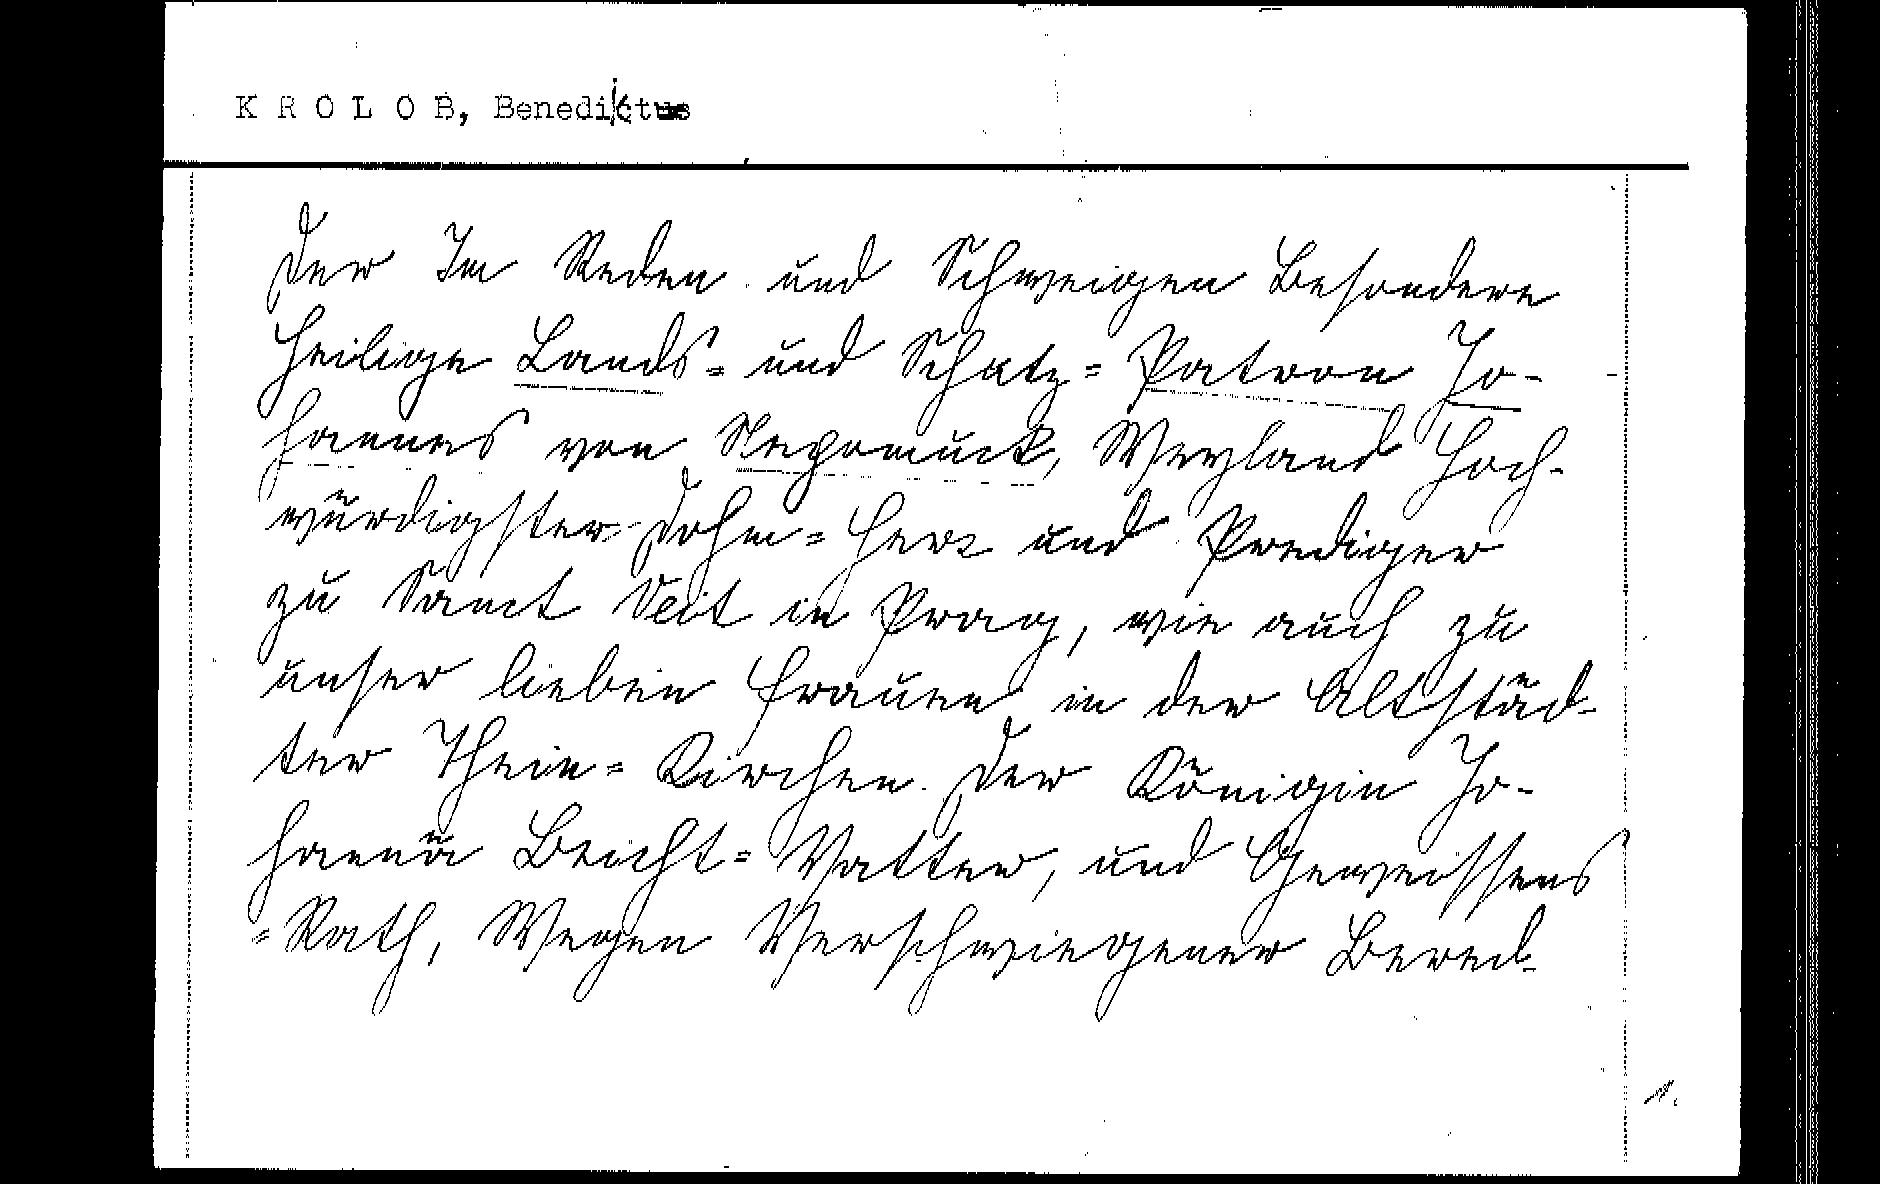 K R O L O B, Benedikt
Der Im Reden und Schweigen Besondere
Heilige Lands= und Schatz= Patron Jo-
hannes von Nepomuck, Weyland Hoch-
würdigster Dohm= Herr und Prediger
zu Sanct Veit in Prag, wie auch zu
unser lieben Frauen in der Altstäd-
ter Thein= Kirchen. Der Königin Jo-
hannä Beicht= Vatter, und Geweissens
=Rath, Wegen Verschwiegener Bered-
1.